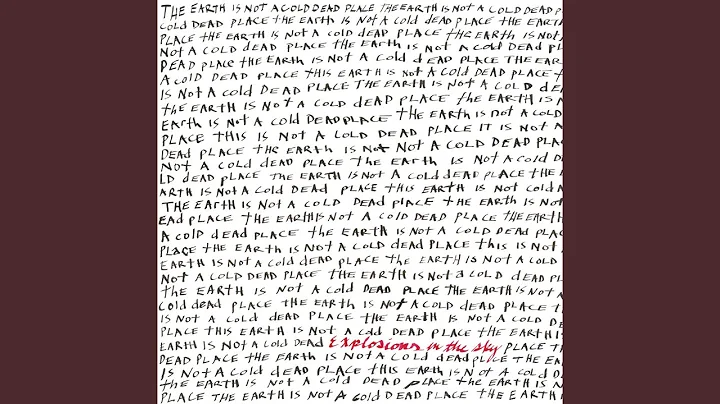 THE EARTH IS NOT A COLD DEAD PLACE THE EARTH IS NOT A COLD DEAD PL
COLD DEAD PLACE THE EARTH IS NOT A COLD DEAD PLACE THE EARTH
PLACE THE EARTH IS NOT A COLD DEAD PLACE THE EARTH IS NOT
NOT A COLD DEAD PLACE THE EARTH IS NOT A COLD DEAD PL
DEAD PLACE THE EARTH IS NOT A COLD dEAD PLACE THE EAR
A COLD DEAD PLACE THIS EARTH IS NOT A COLD DEAD PLACE
IS NOT A COLD DEAD PLACE THE EARTH IS NOT A COLD DE
the EARTH IS NOT A COLD DEAD PLACE the EARTH IS N
EARTH IS NOT A COLD DEAD PLACE THE EARTH IS NOT A COLD
PLACE THIS IS NOT A COLD DEAD PLACE IT IS NOT A
DEAD PLACE THE EARTH IS NOT NOT A COLD DEAD PLA
NOT A COLD dEAD PLACE THE EARTH IS NOT A COLD D
LD DEAD PLACE THE EARTH IS NOT A COLD DEAD PLACE THE
ARTH IS NOT A COLD DEAD PLACE THIS EARTH IS NOT COLD
THE EARTH IS NOT A COLD DEAD PLACE THE EARTH IS NOT
EAD PLACE THE EARTH IS NOT A COLD DEAD PLACE THE EARTH
A COLD dEAD PLACE the EARTH IS NOT A COLD DEAD PLAC
PLACE THE EARTH IS NOT A COLD dEAD PLACE THIS IS NOT
EARTH IS NOT A COLD DEAD PLACE THE EARTH IS NOT A COLD
NOT A COLD DEAD PLACE THE EARTH IS NOT A COLD DEAD PL
the EARTH IS NOT A COLD DEAD PLACE THE EARTH IS NOT
COLD dEAD PLACE THE EARTH IS NOT A COLD DEAD PLACE
IS NOT A COLD DEAD PLACE THE EARTH IS NOT A COLD DE
PLACE THIS EARTH IS NOT A COLD DEAD PLACE THE EARTH
EARTH IS NOT A COLD DEAD Explosions in the sky PLACE
DEAD PLACE THE EARTH IS NOT A COLD dEAD PLACE THE EA
IS NOT A COLD DEAD PLACE THIS EARTH IS NOT A COLD D
THE EARTH IS NOT A COLD DEAD PLACE THE EARTH IS N
PLACE THE EARTH IS NOT A COLD DEAD PLACE THE EARTH